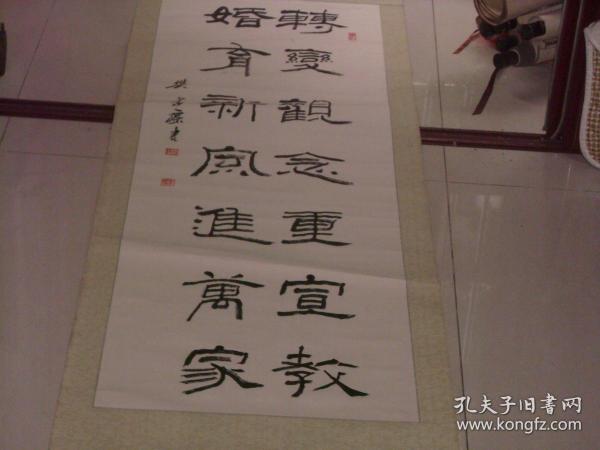 轉變觀念重宣教
婚育新風進萬家
孔夫子旧书网
www.kongfz.com